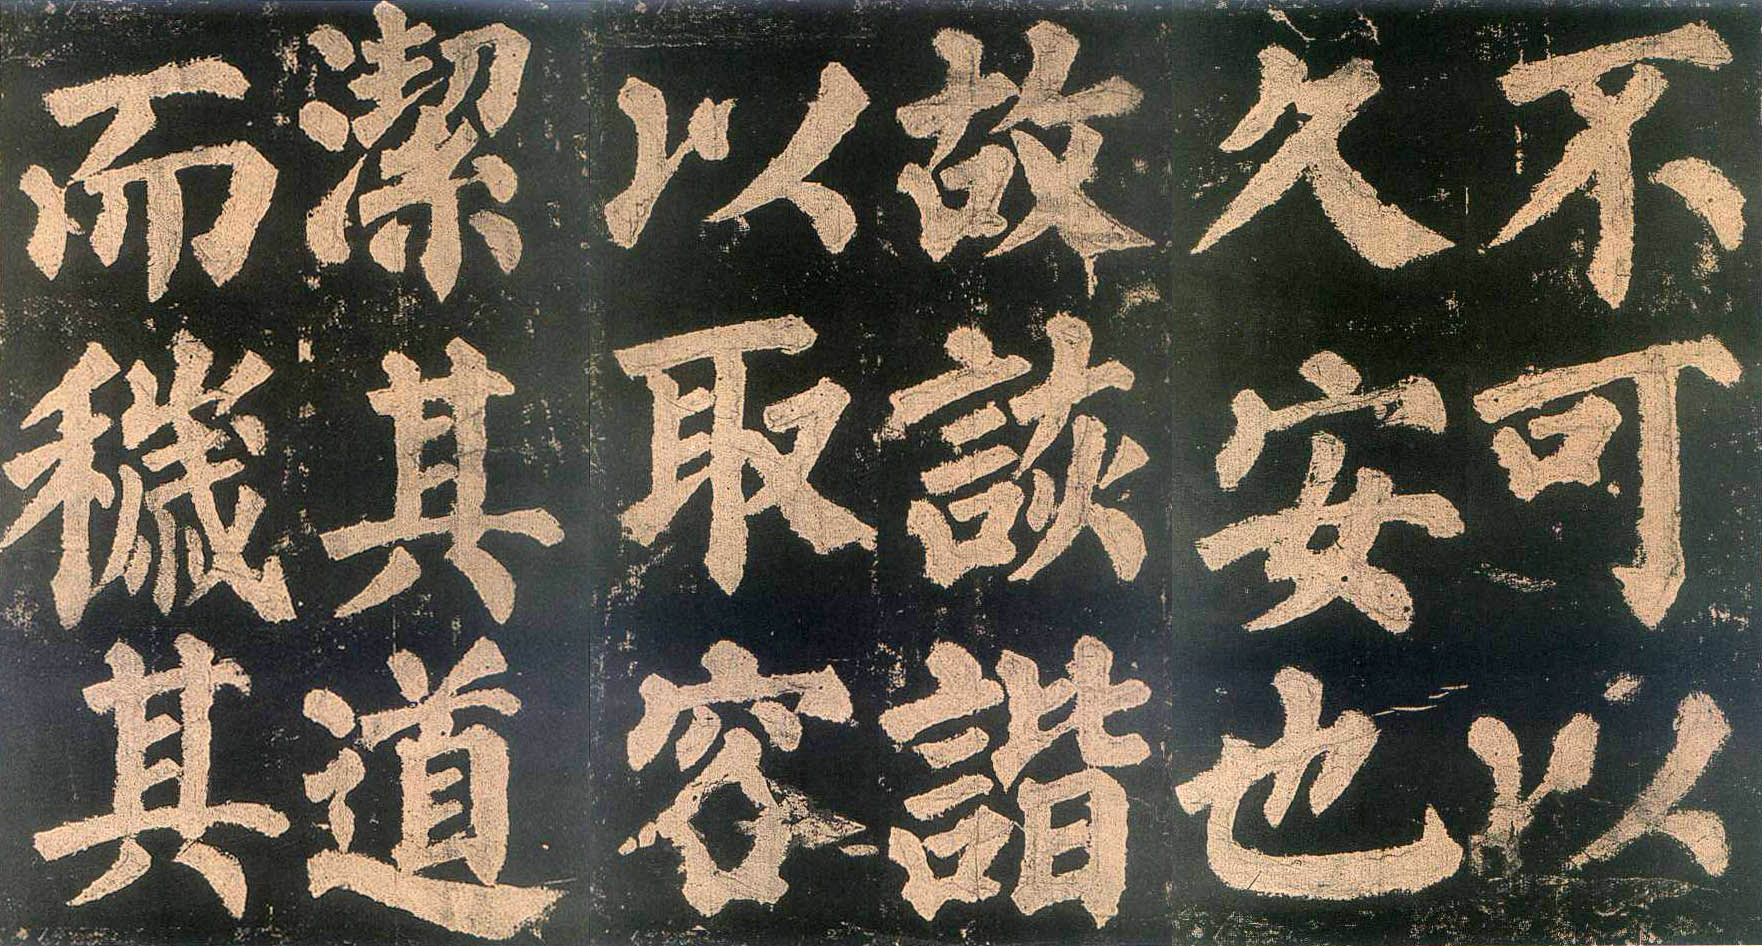 不可以
久安也
故詼諧
以取容
潔其道
而穢其